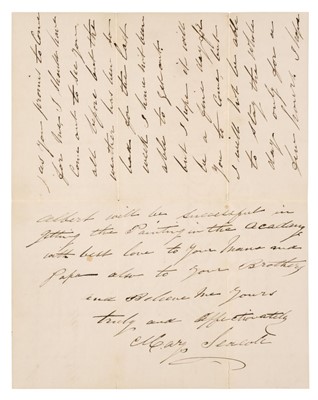 as you promis to come
for me I should have
come out to see you
all before but the
weather has been so
bad for the last
week I have not been
able to get out
but I hope it will
be a fine day for
you to come but
I will not be able
to stay the whole
day only for a
few hours I hope
Albert will be successful in
getting the Painting in the Academy
with best love to your Mama and
Papa also to your Brothers
and Believe me yours
truly and affectionately
Mary Seacole